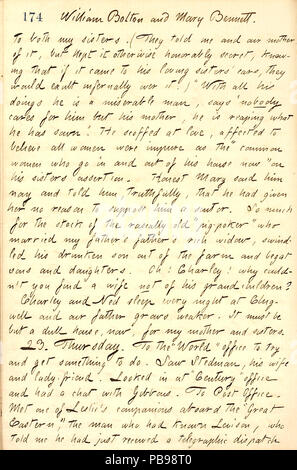 174 William Bolton and Mary Bennett.
to both my sisters. (They told me and our mother
of it, but kept it otherwise honorably secret, know-
ing that if it came to his loving sisters' ears, they
would exult infernally over it.) "With all his
doings he is a miserable man, says nobody
cares for him but his mother, he is reaping what
he has sown." He scoffed at love, affected to
believe all women were impure as the "common
women who go in and out of his house now" on
his sisters' assertion. Honest Mary said him
nay and told him, truthfully, that he had given
her no reason to support him a suitor. So much
for the stock of the rascally old "pig-poker" who
married my father's father's rich widow, swind-
led his drunken son out of the farm and begat
sons and daughters. Oh! Charley! why could-
n't you find a wife not of his grandchildren?
Charley and Ned sleep every night at Chig-
well and our father grows weaker. It must be
but a dull house, now, for my mother and sisters.
23. Thursday. To the "World" office to try
and get something to do. Saw Stedman, his wife
and lady-friend. Looked in at Century office
and had a chat with Gibbons. To Post Office.
Met one of Leslie's companions aboard the "Great
Eastern," the man who had known Levison, who
told me he had just received a telegraphic dispatch
alamy
PB98T0